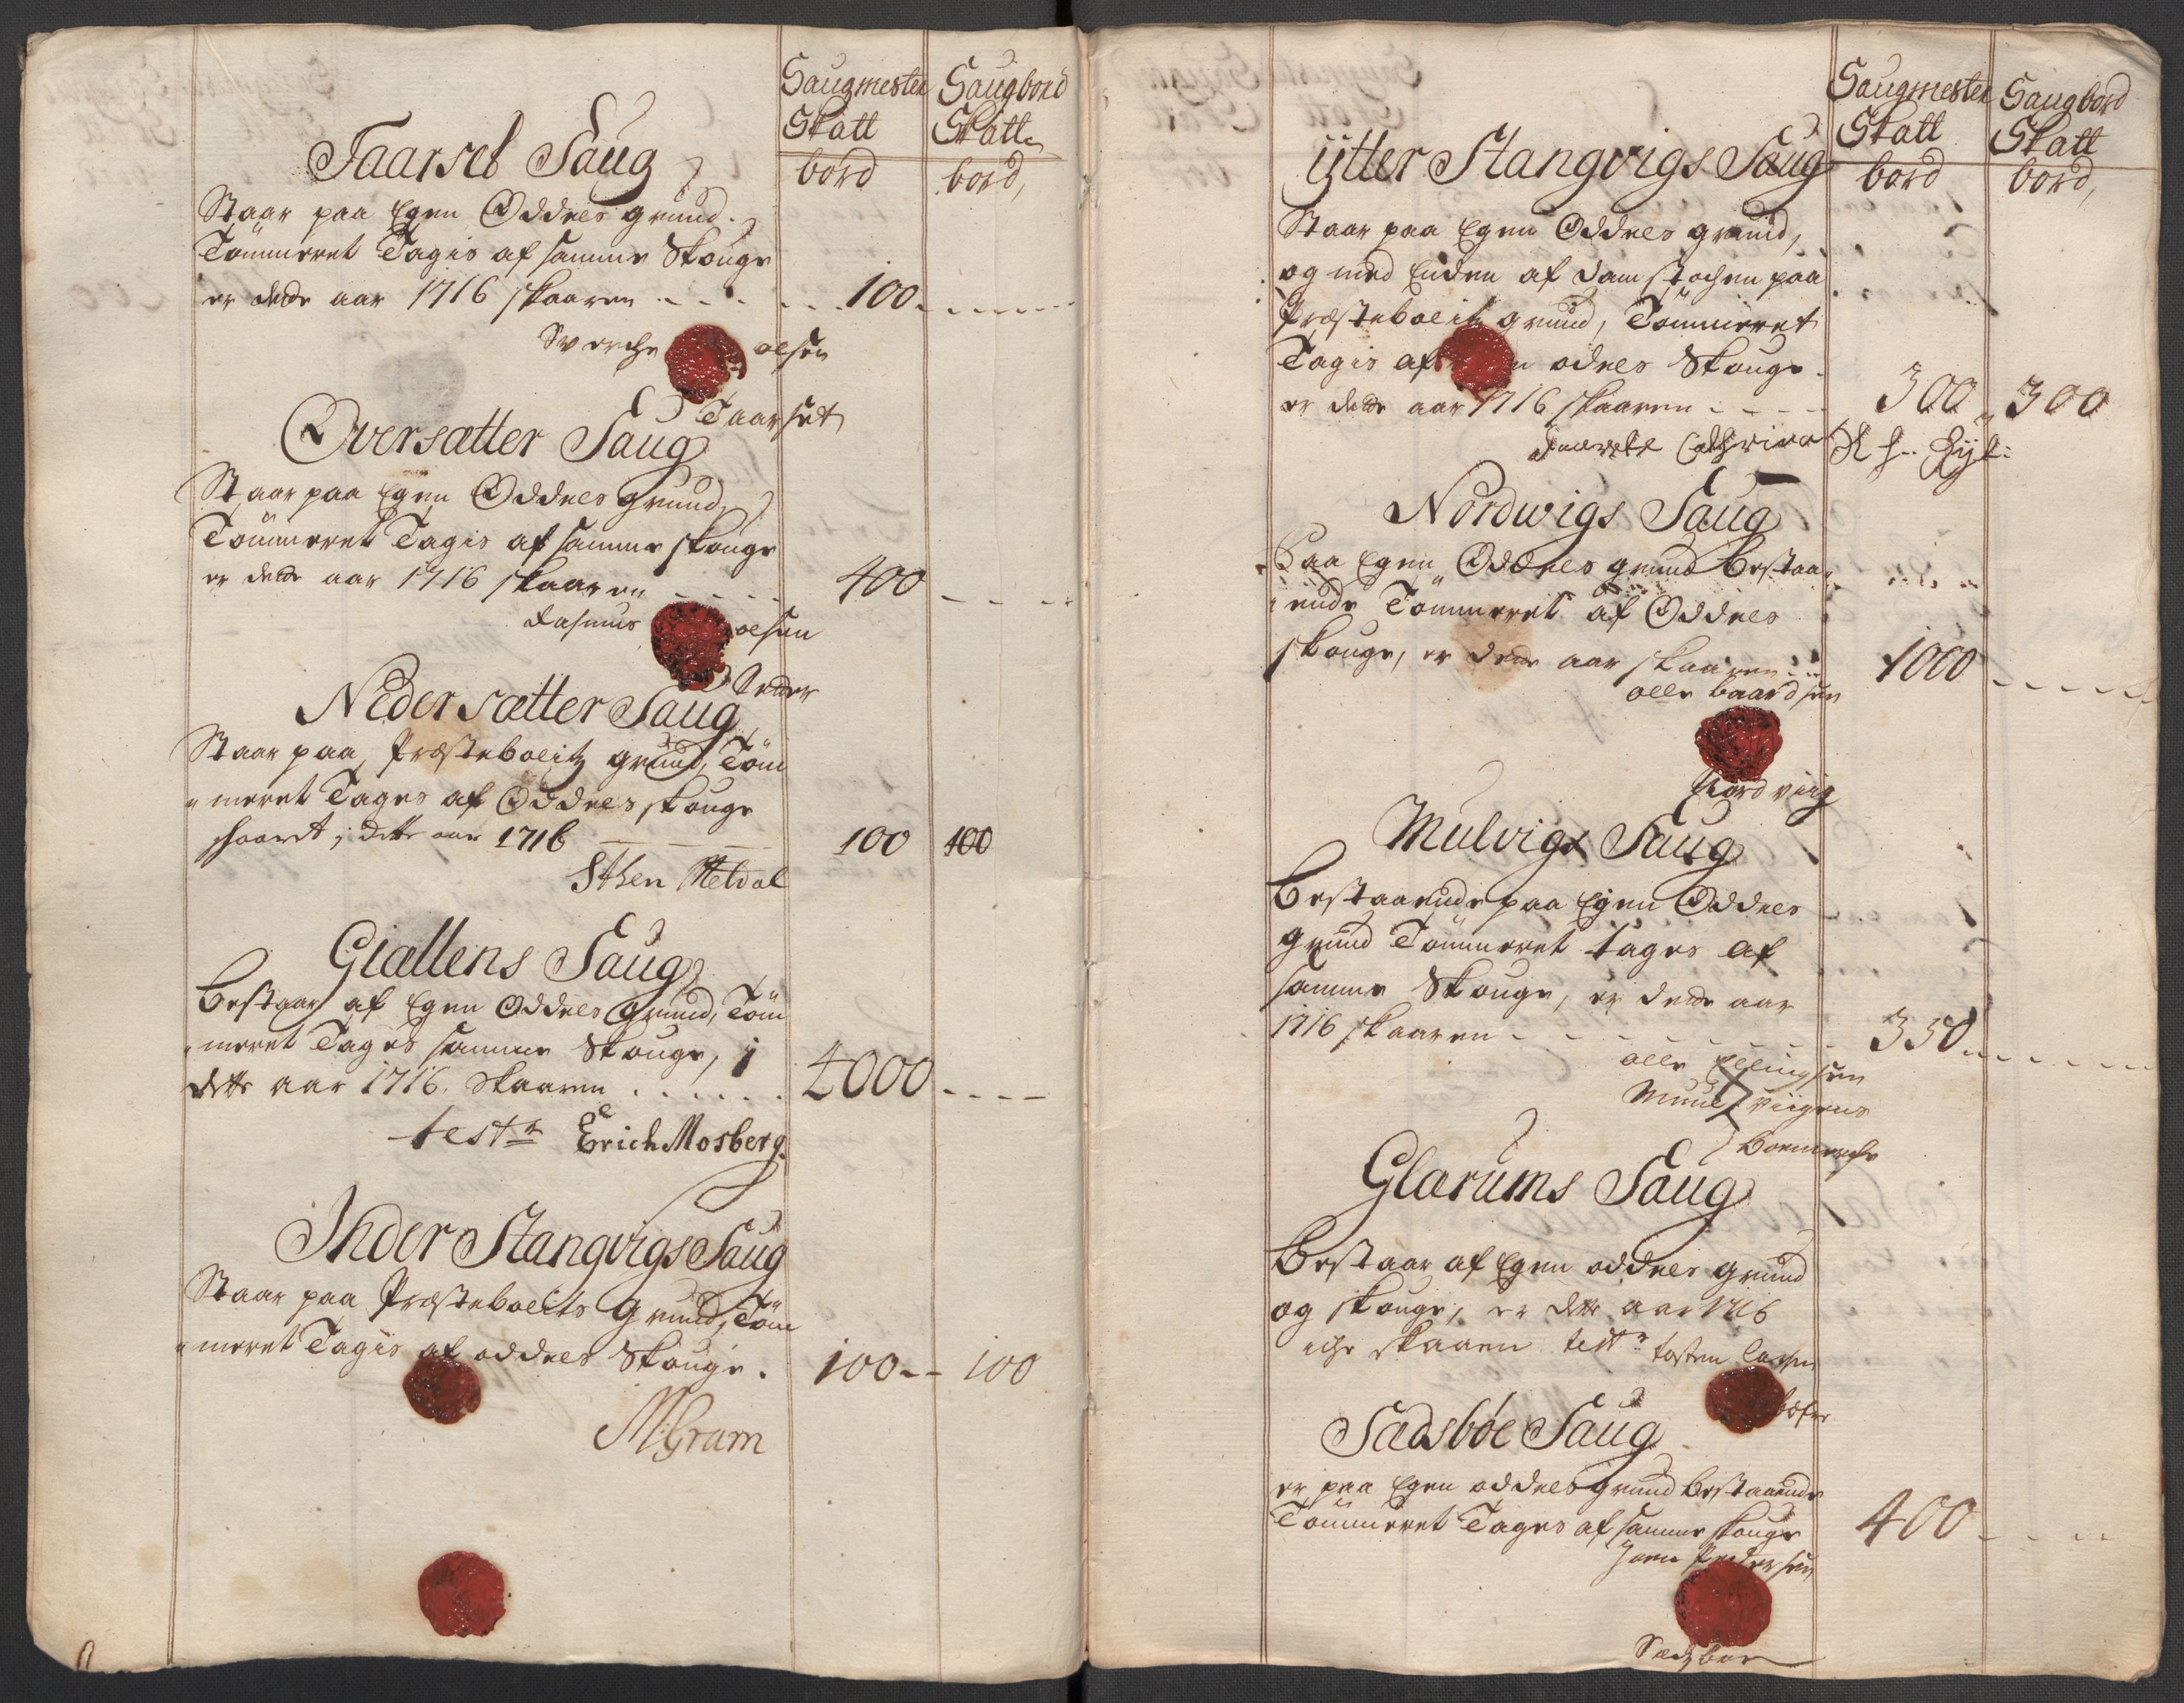 Saugmester Saugbord
Skatt Skatt
bord bord,
Faarset Saug
Staar paa Egen Oddels grund.
Tömmeret Tagis af samme Skouge
er dette aar 1716 skaaren - - - - 100. - - - -
Olsen
Taarset
Oversætter Saug
Staar paa Egen Oddels grund,
Tömmeret Tagis af samme skouge
er dette aar 1716 skaaren - - - - 400 - - - -
Rasmus olsen
Setter
Neder sætter Saug
Staar paa Præstebolitz grund, Töm
"meret Tages af Oddels skouge
skaaret i dette aar 1716 - - - - 100 100
Sthen Meldal
Giættens Saug
Bestaar af Egen Oddels Grund, Töm
"meret Tages samme Skouge, i
dette aar 1716. Skaaren . . . . . . 2000 - - - -
teste Erich Mosberg.
Inder Stangvigs Saug
Staar paa Præstebolits Grund, Töm
"meret Tagis af oddels Skouge. 100 - - 100
M: Gram
Saugmester Saugbord
Skatt Skatt
bord bord,
ÿtter Stangvigs Saug
Staar paa Egen Oddels grund,
og med Enden af dam stochen paa
Præstebolitz grund, Tömmeret
Tagis af odels Skouge.
er dette aar 1716 skaaren - - - - 300 300
Cathrina
Nordwigs Saug
Paa Egen Oddels grund Bestaa-
ende Tömmeret af Oddels
skouge, er dette aar skaaren 1000 - - - - -
olle baardsen
Nordviig
Mulvigs Saug
Bestaaende paa Egen Oddels
grund Tömmeret tages af
samme Skouge, er dette aar
1716 skaaren - - - - - - 350 - - - - -
olle Ellingsen
Muul viigens
Boemerche
Glærums Saug
Bestaar af Egen oddels grund
og skouge, er dette aar 1716
iche skaaren test: tosten Larsen
Sædsböe Saug
er paa Egen oddels grund bestaaende
Tömmeret Tages af samme skouge 400 - - - -
Joen Pedersen
Sædsboe